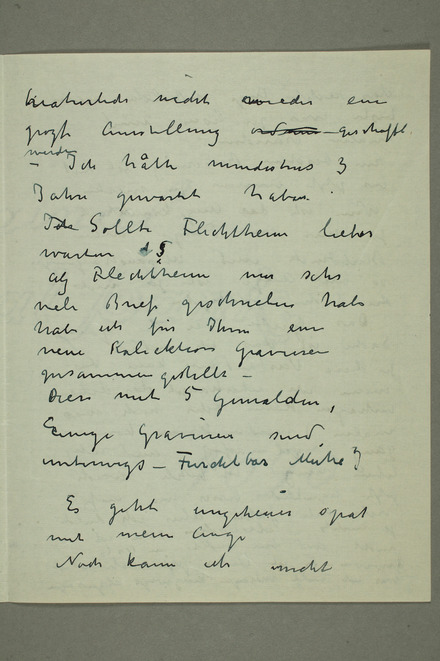 nicht wieder ein
Ausstellung geschafft
werden
– Ich hätte mindestens 3
Jahre gewartet haben.
Sollte Flechtheim lieber
warten
als Flechtheim mir sehr
viele Briefe geschrieben habe
habe ich für Ihm ein
neue Kollektion Gravuren
zusammengestellt –
Dies mit 5 Gemälden,
Einige Gravuren sind
unterwegs – Furchtbar Mühe
Es geht ungeheuer spät
mit mein Auge
Noch kann ich nicht